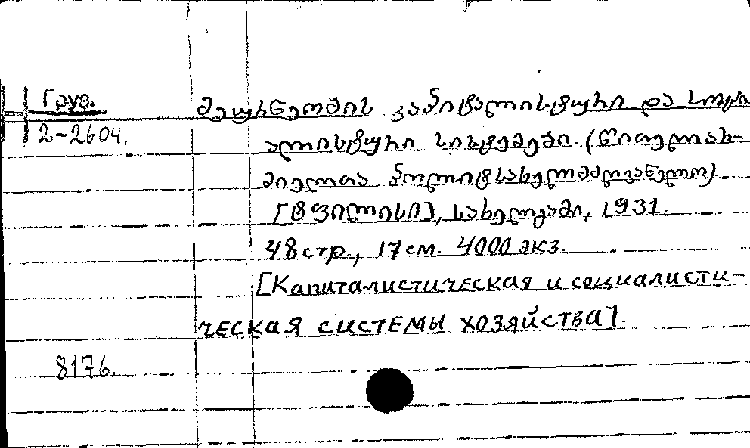 Груз.
2-2604.
მეურნეობის კაპიტალისტური და სოცი
ალისტური სისტემები. (წითელარ-
მიელთა პოლიტსახელმძღვანელო)
[ტფილისი], სახელგამი, 1931.
48 стр., 17 см. 4000 экз.
[Капиталистическая и социалисти-
ческая системы хозяйства].
8176.